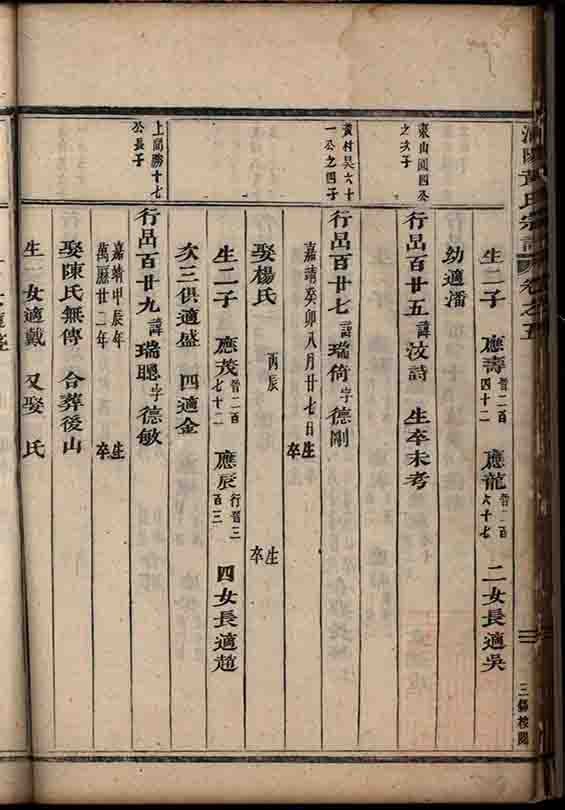 黃氏宗譜 卷之五
三錫校閱
生二子 應壽 晉二百四十二 應龍 晉二百六十七 二女長適吳
幼適潘
東山閏四公之次子
行昌百廿五 諱汶詩 生卒未考
黃村吳六十一公之四子
行昌百廿七 諱瑞倚 字德剛
嘉靖癸卯八月廿七日生 卒
娶楊氏 丙辰 生 卒
生二子 應茂 晉二百七十二 應辰 行晉三百三 四女長適趙
次三俱適盛 四適金
上閣勝十七公長子
行昌百廿九 諱瑞聰 字德敏
嘉靖甲辰年生
萬歷廿二年卒
娶陳氏無傳 合葬後山
生一女適戴 又娶 氏